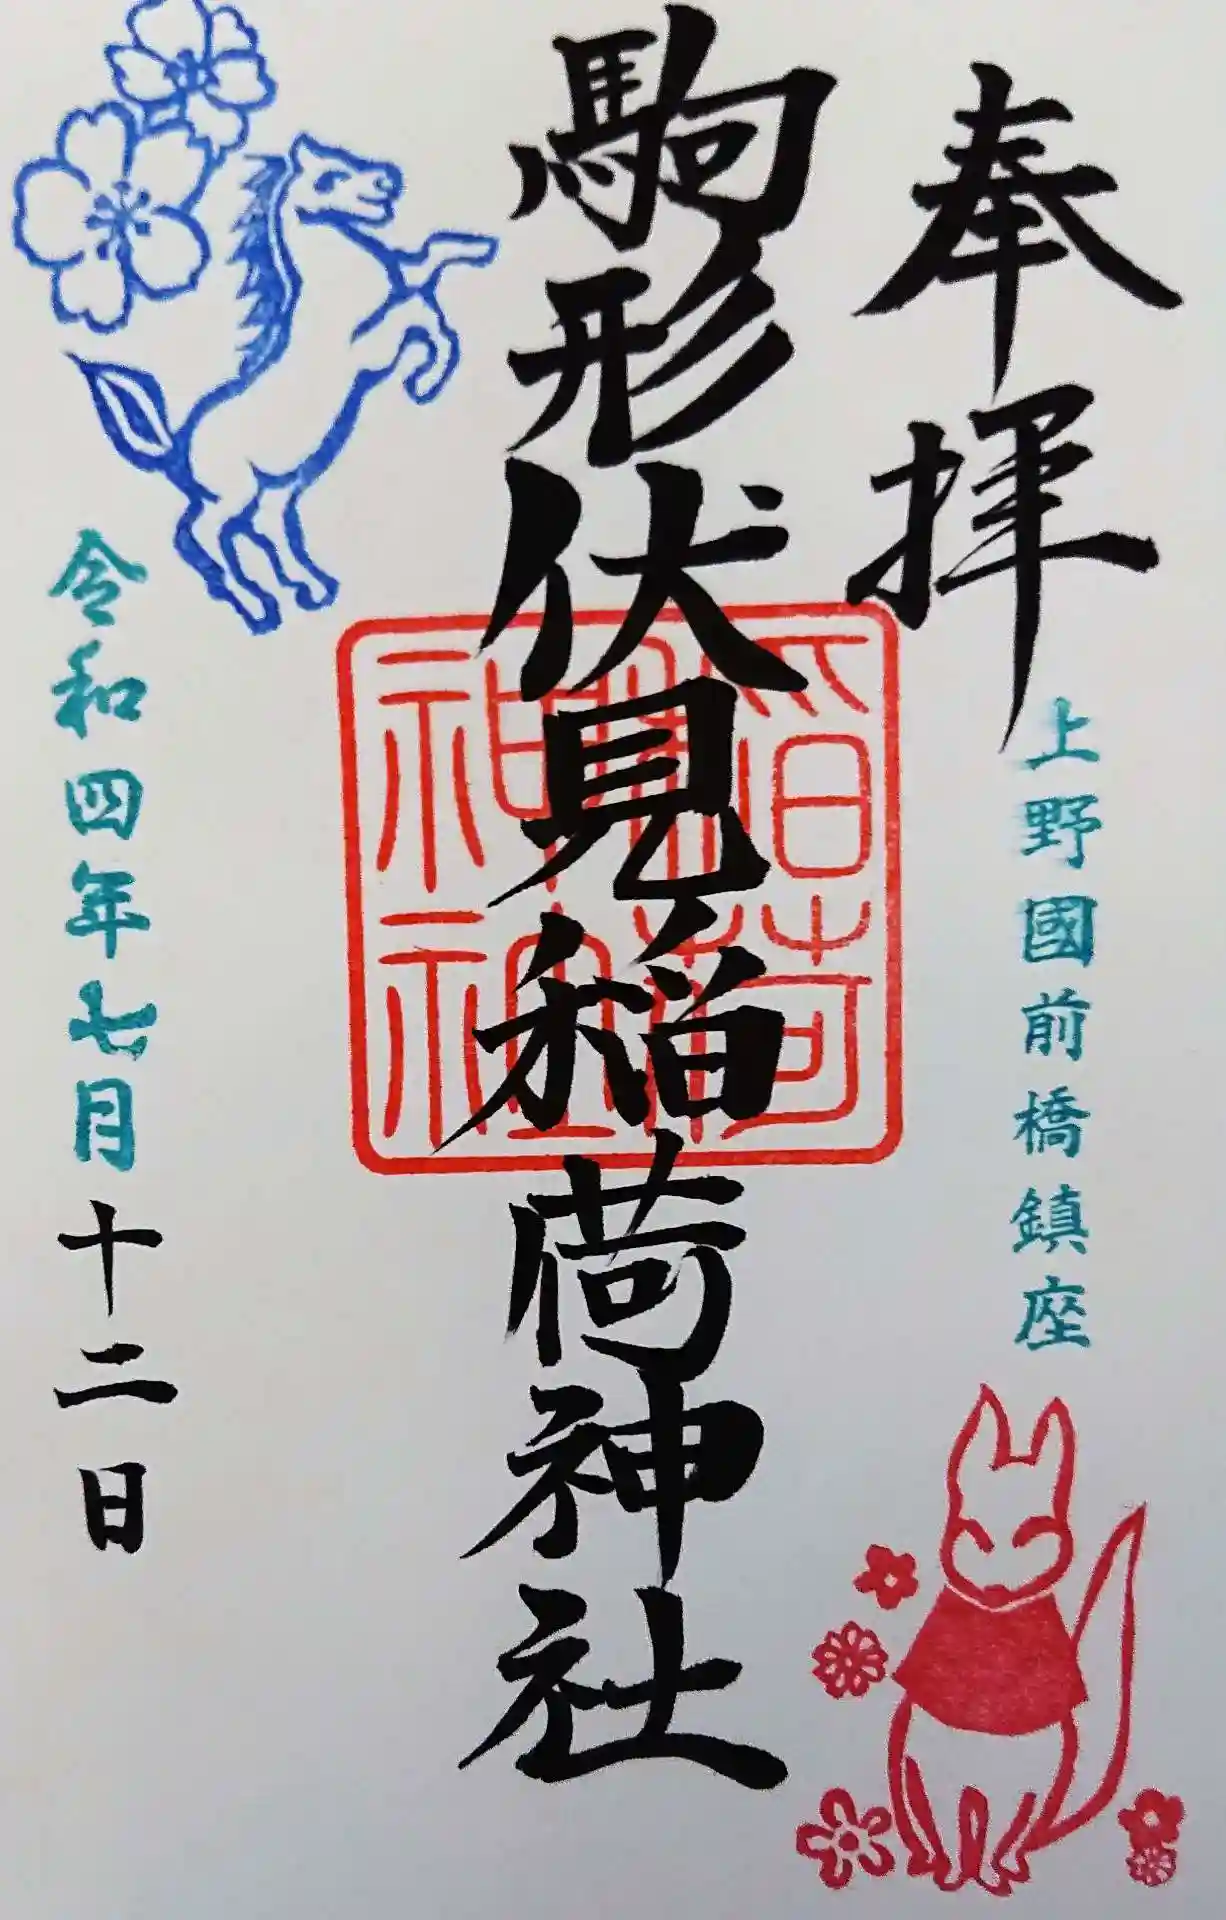 奉拝
上野國前橋鎮座
駒形伏見稲荷神社
稲荷
神社
令和四年七月十二日